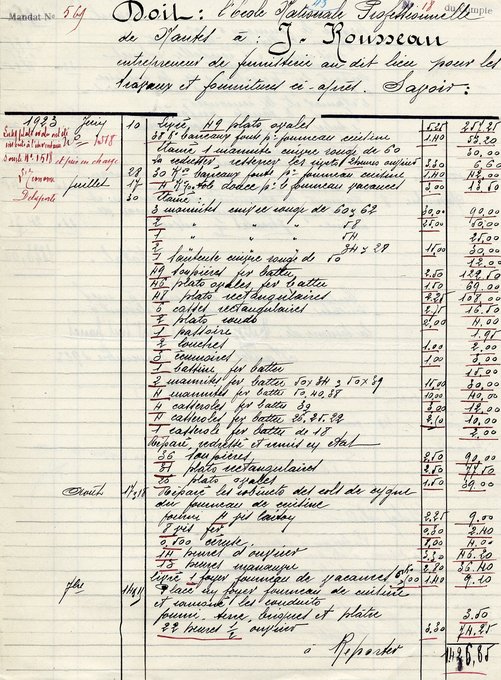 Mandat No 569
du Compte
Doit: l'école Nationale Professionnelle
de Nantes à: J. Rousseau
entrepreneur de fumisterie au dit lieu pour les
travaux et fournitures ci-après. Savoir:
1923 Juin 10 livré 49 plats ovales 5.25 257.25
38 K° barreaux fonte pr fourneau cuisine 1.40 53.20
étamé 1 marmite cuivre rouge de 60 30.00
30 K° barreaux fonte pr fourneau cuisine 1.40 42.00
Juillet 17 pr le fourneau vacances 3.00
30 Étamé:
3 marmites cuivre rouge de 60 x 62 30.00 90.00
2 " " " 58 25.00 50.00
1 " " " 54 25.00
2 " " " 15.00 30.00
1 sauteuse cuivre rouge de 50 12.00
49 soupières fer battu 2.50 122.50
46 plats ovales fer battu 1.50 69.00
48 plats rectangulaires 2.25 108.00
6 casses rectangulaires 2.75 16.50
2 plats ronds 2.00 4.00
1 passoire 1.95
2 louches 1.00 2.00
3 écumoires 1.00 3.00
1 bassine fer battu 15.00
2 marmites fer battu 15.00 30.00
4 marmites fer battu 50.40.38 10.00 40.00
4 casseroles fer battu 3.00 12.00
4 casseroles fer battu 26.25.22 10.00
1 casserole fer battu de 18 2.00
Réparé, redressé et remis en état
36 soupières 2.50 90.00
31 plats rectangulaires 2.50 77.50
26 plats ovales 1.50 39.00
Août 17 x 18 Réparé les robinets des cols de cygne
du fourneau de cuisine
fourni 4 vis laiton 2.25 9.00
8 vis fer 0.30 2.40
0,500 céruse 4.00
14 heures d'ouvrier 3.30 46.20
13 heures manœuvre 2.80 36.40
livré 1 foyer fourneau de vacances 1.40 9.10
7bre Placé un foyer fourneau de cuisine
et ramoné les conduits
fourni terre, briques et plâtre 3.50
22 heures 1/2 ouvrier 3.30 74.25
à Reporter 1426,85